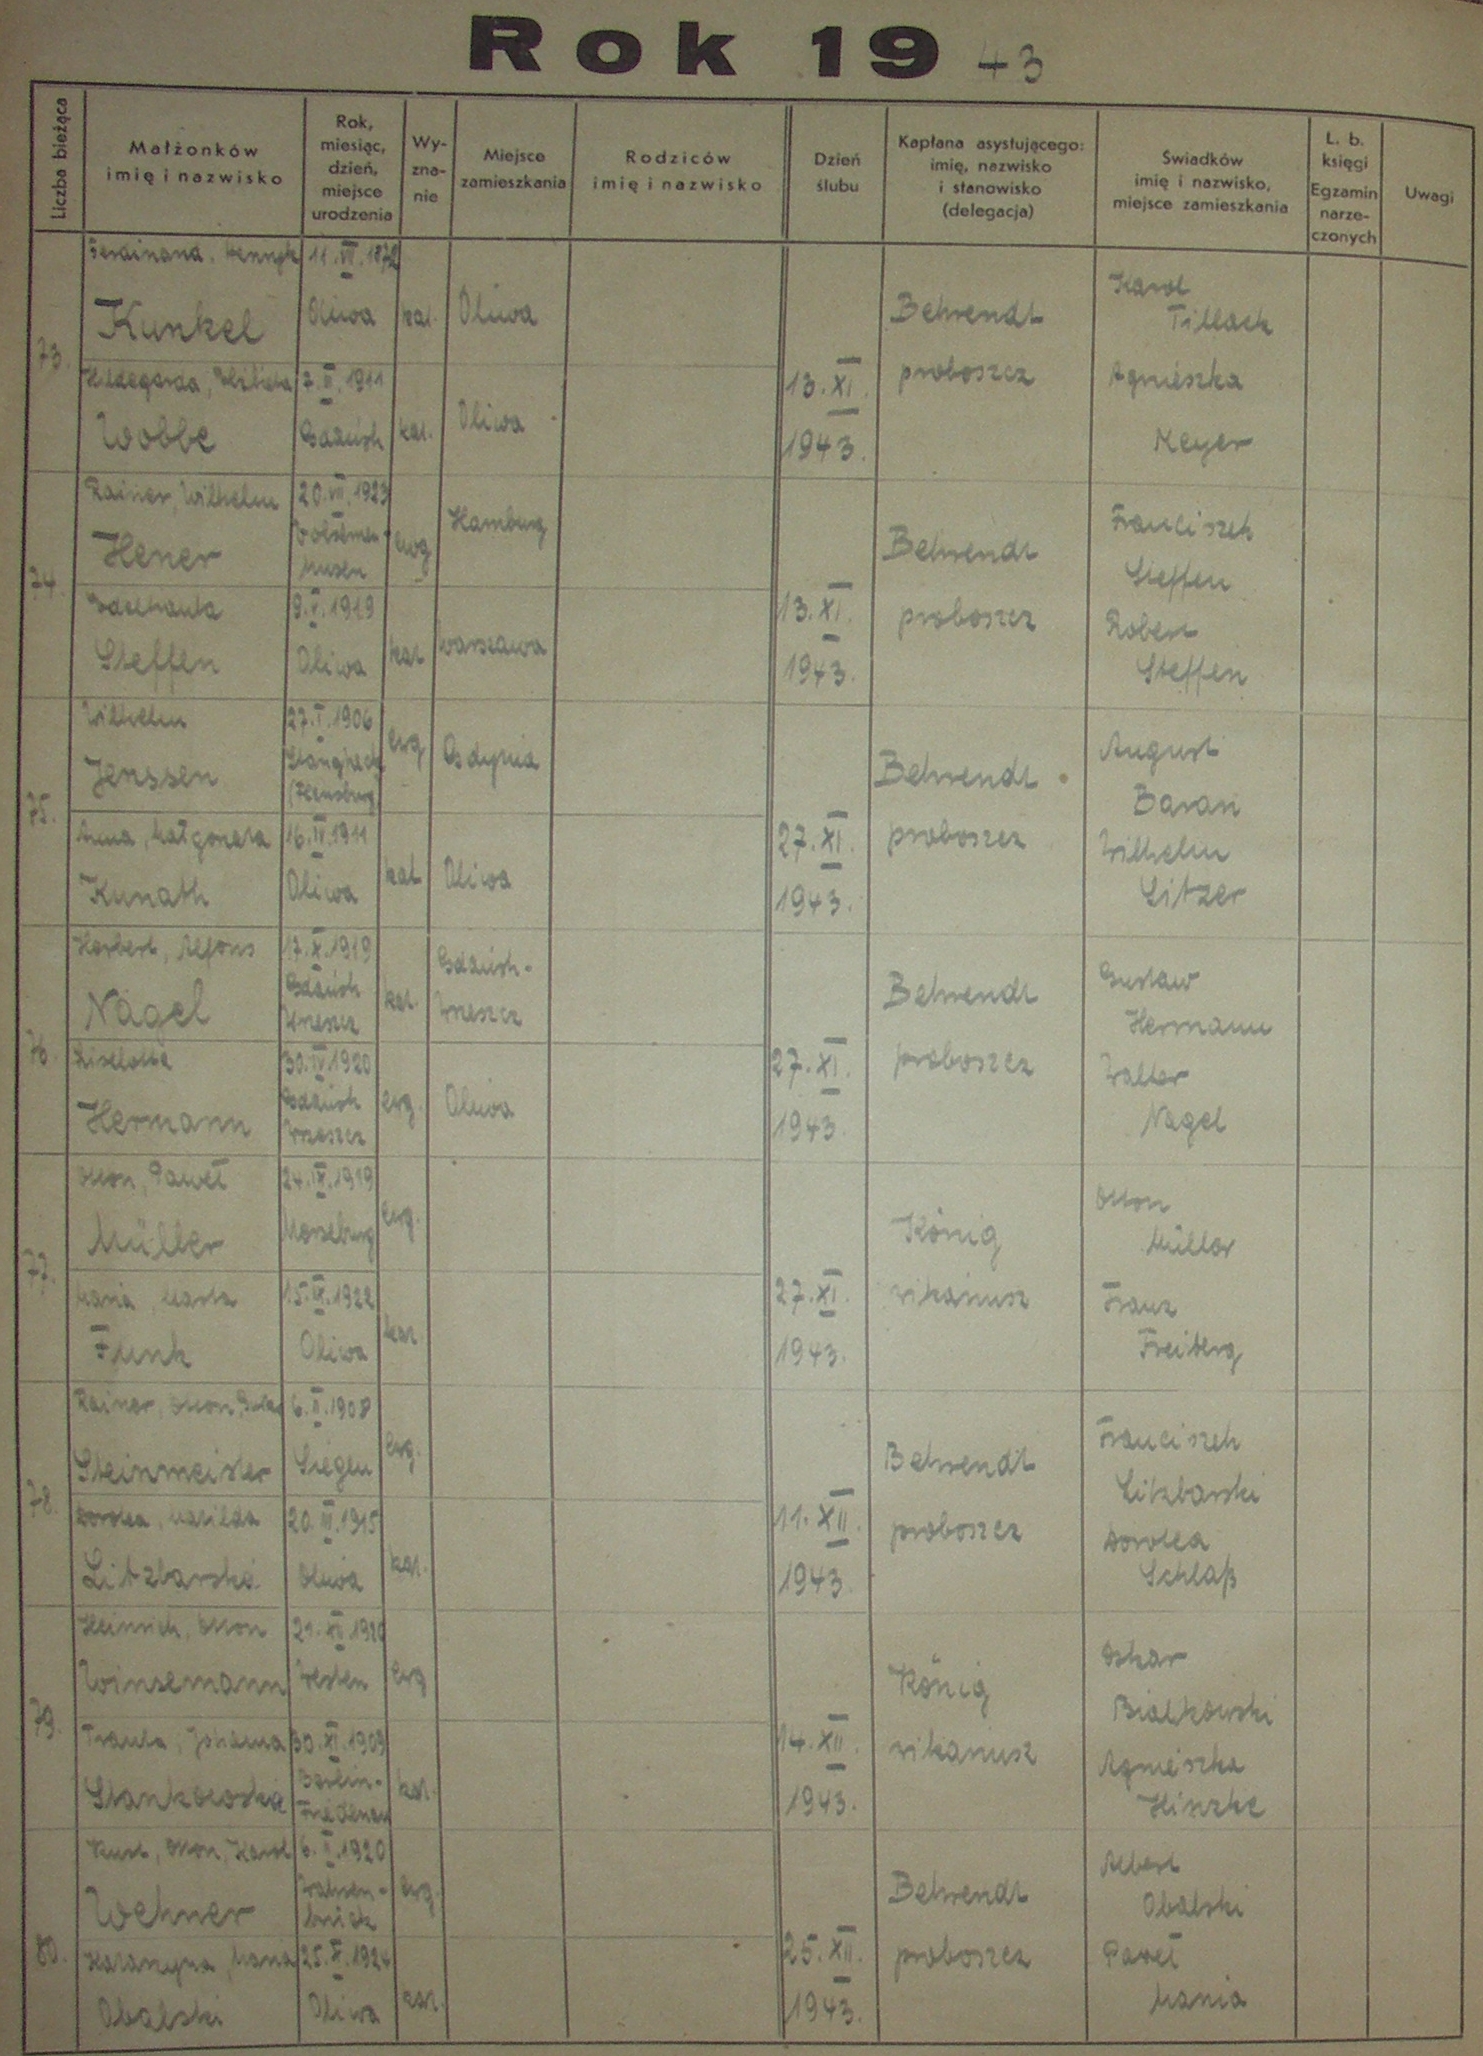 Rok 19 43
Liczba bieżąca
Małżonków
imię i nazwisko
Rok,
miesiąc,
dzień,
miejsce
urodzenia
Wy-
zna-
nie
Miejsce
zamieszkania
Rodziców
imię i nazwisko
Dzień
ślubu
Kapłana asystującego:
imię, nazwisko
i stanowisko
(delegacja)
Świadków
imię i nazwisko,
miejsce zamieszkania
L. b.
księgi
Egzamin
narze-
czonych
Uwagi
73.
Ferdinand, Henryk
Kunkel
11.VII.1872
Oliwa
kat.
Oliwa
Hildegarda, Elżbieta
Wobbe
7.II.1911
Gdańsk
kat.
Oliwa
13.XI.
1943.
Behrendt
proboszcz
Karol
Tillack
Agnieszka
Meyer
74.
Rainer, Wilhelm
Hener
20.VII.1923
ewg
Hamburg
Steffen
9.V.1919
Oliwa
kat
Warszawa
13.XI.
1943.
Behrendt
proboszcz
Franciszek
Steffen
Robert
Steffen
75.
Wilhelm
Jenssen
27.I.1906
(Flensburg)
ewg
Gdynia
Anna, Małgorzata
Kunath
16.IV.1911
Oliwa
kat
Oliwa
27.XI.
1943.
Behrendt
proboszcz
August
Baran
Wilhelm
Litzer
76.
Herbert, Alfons
Nagel
17.X.1919
Gdańsk
Wrzeszcz
kat.
Gdańsk-
Wrzeszcz
Liselotte
Hermann
30.IV.1920
Gdańsk
Wrzeszcz
ewg.
Oliwa
27.XI.
1943.
Behrendt
proboszcz
Gustaw
Hermann
Walter
Nagel
77.
Otton, Paweł
Müller
24.IX.1919
Merseburg
ewg.
Maria, Marta
Funk
15.IX.1922
Oliwa
kat
27.XI.
1943.
König
wikariusz
Otton
Müller
Franz
Freiberg
78.
Rainer, Otton,
Steinmeister
6.II.1908
Siegen
ewg.
Dorotea, Matilda
Litzbarski
20.III.1915
Oliwa
kat.
11.XII.
1943.
Behrendt
proboszcz
Franciszek
Litzbarski
Dorotea
Schlaß
79.
Heinrich, Otton
Winsemann
21.XII.1920
ewg
Trauta, Johanna
Stankowski
30.XI.1903
Berlin-
Friedenau
kat.
14.XII.
1943.
König
wikariusz
Oskar
Białkowski
Agnieszka
Hinzke
80.
Kurt, Otton, Karol
Wehner
6.I.1920
Wahren-
brück
ewg.
Katarzyna, Maria
Obalski
25.V.1924
Oliwa
kat.
25.XII.
1943.
Behrendt
proboszcz
Albert
Obalski
Paweł
Mania